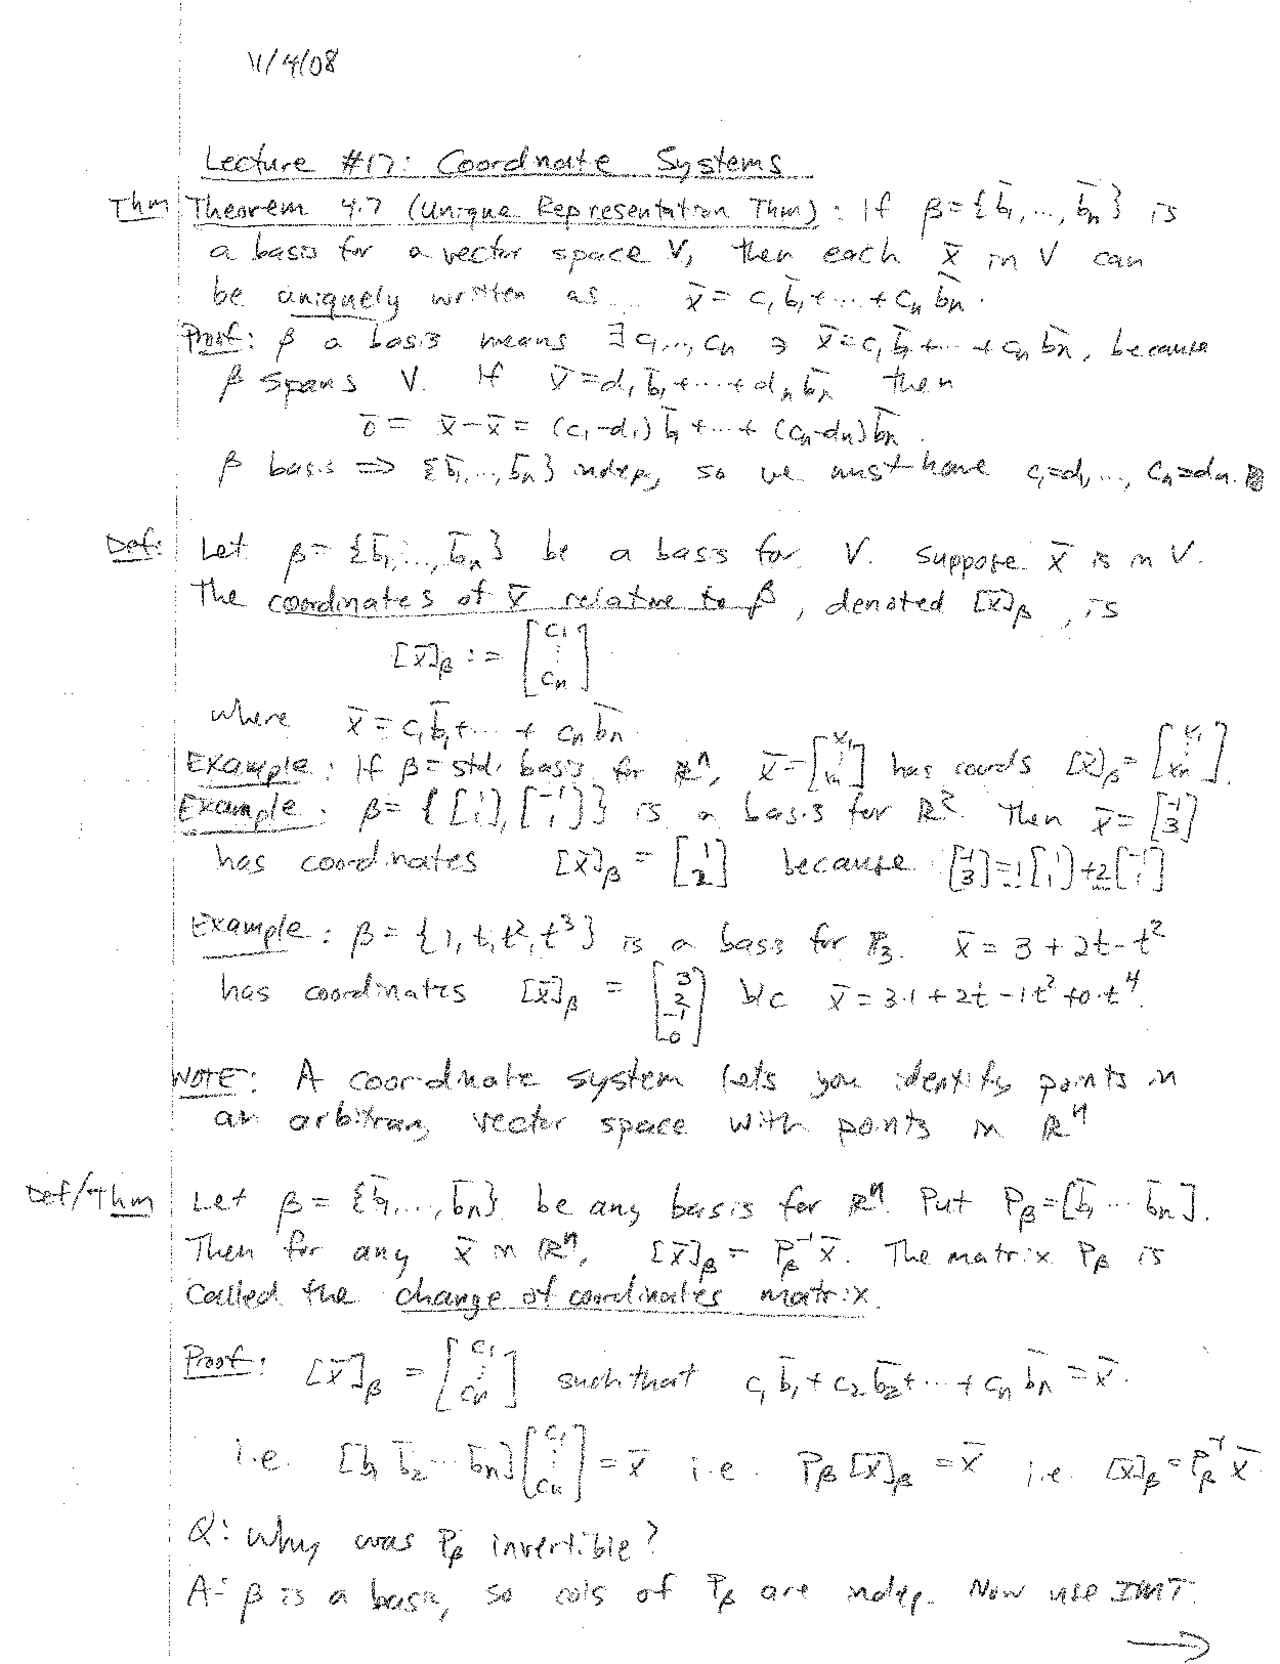 11/4/08
Lecture #17: Coordinate Systems
Thm Theorem 4.7 (Unique Representation Thm): If β={b̄₁,…,b̄ₙ} is
a basis for a vector space V, then each x̄ in V can
be uniquely written as x̄ = c₁b̄₁+⋯+cₙb̄ₙ.
Proof: β a basis means ∃ c₁,…,cₙ ∋ x̄=c₁b̄₁+⋯+cₙb̄ₙ, because
β spans V. If x̄=d₁b̄₁+⋯+dₙb̄ₙ then
0̄ = x̄-x̄ = (c₁-d₁)b̄₁+⋯+(cₙ-dₙ)b̄ₙ.
β basis ⇒ {b̄₁,…,b̄ₙ} indep, so we must have c₁=d₁,…, cₙ=dₙ.
Def: Let β = {b̄₁,…,b̄ₙ} be a basis for V. Suppose x̄ is in V.
The coordinates of x̄ relative to β, denoted [x̄]_β, is
[x̄]_β := [c₁ ⋮ cₙ]
where x̄ = c₁b̄₁+⋯+cₙb̄ₙ
Example: If β = std. basis for ℝⁿ, x̄=[x₁ ⋮ xₙ] has coords [x̄]_β = [x₁ ⋮ xₙ].
Example: β={[1 1],[-1 1]} is a basis for ℝ². Then x̄=[-1 3]
has coordinates [x̄]_β = [1 2] because [-1 3]=1[1 1]+2[-1 1]
Example: β = {1,t,t²,t³} is a basis for ℙ₃. x̄ = 3+2t-t²
has coordinates [x̄]_β = [3 2 -1 0] b/c x̄ = 3·1+2t-1t²+0·t⁴.
NOTE: A coordinate system lets you identify points in
an arbitrary vector space with points in ℝⁿ
Def/Thm Let β = {b̄₁,…,b̄ₙ} be any basis for ℝⁿ. Put P_β=[b̄₁ ⋯ b̄ₙ].
Then for any x̄ in ℝⁿ, [x̄]_β = P_β⁻¹x̄. The matrix P_β is
called the change of coordinates matrix.
Proof: [x̄]_β = [c₁ ⋮ cₙ] such that c₁b̄₁+c₂b̄₂+⋯+cₙb̄ₙ = x̄.
i.e. [b̄₁ b̄₂ ⋯ b̄ₙ][c₁ ⋮ cₙ] = x̄ i.e. P_β[x̄]_β = x̄ i.e. [x̄]_β = P_β⁻¹x̄.
Q: Why was P_β invertible?
A: β is a basis, so cols of P_β are indep. Now use IMT.
→